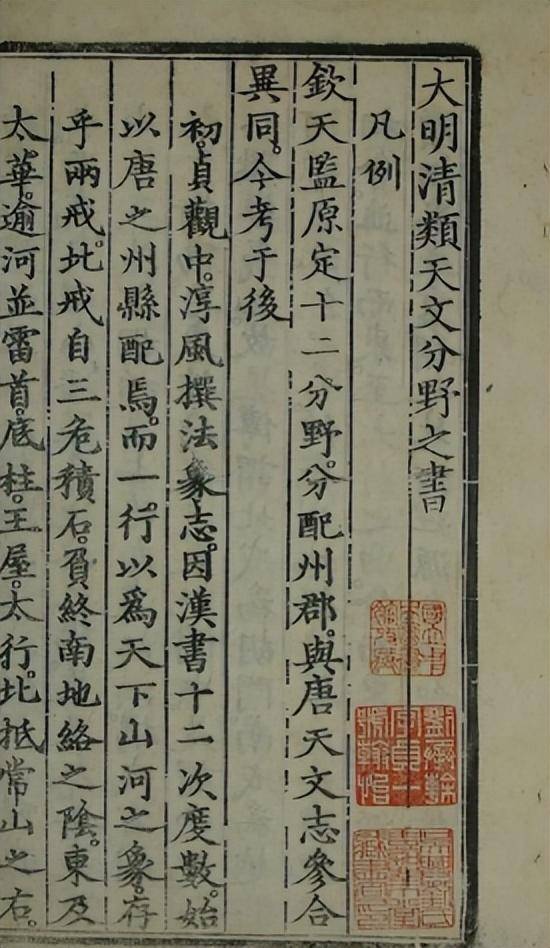 大明清類天文分野之書
凡例
欽天監原定十二分野。分配州郡。與唐天文志參合
異同。今考于後
初。貞觀中。淳風撰法象志。因漢書十二次度數。始
以唐之州縣配焉。而一。行以爲天下山河之象。存
乎兩戒。北戒自三危積石。負終南地絡之陰。東及
太華。逾河並雷首。底柱。王屋。太行。北抵常山之右。
劉承幹
字貞一
號翰怡
吳興劉氏
嘉業堂
藏書印